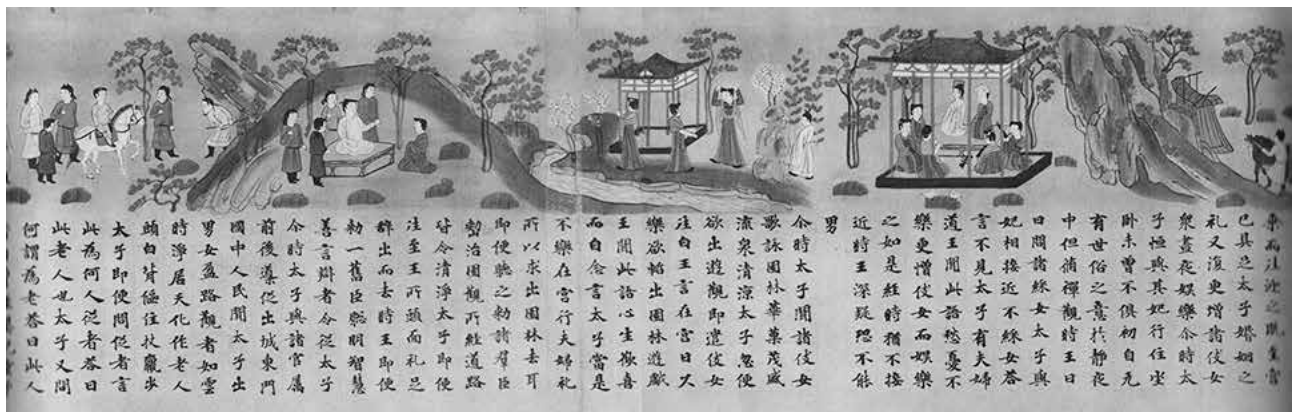 而往迎之既至宮
已具足太子婚姻之
礼又復更增諸伎女
衆晝夜娛樂尒時太
子恒與其妃行住坐
卧未曾不俱初自无
有世俗之意於靜夜
中但脩禪觀時王日
日問諸綵女太子與
妃相接近不綵女答
言不見太子有夫婦
道王聞此語愁憂不
樂更增伎女而娛樂
之如是経時猶不接
近時王深疑恐不能
男
尒時太子聞諸伎女
歌詠園林華菓茂盛
流泉清涼太子忽便
欲出遊觀即遣伎女
往白王言在宮日久
樂欲暫出園林遊戯
王聞此語心生歡喜
而自念言太子當是
不樂在宮行夫婦礼
所以求出園林去耳
即便聽之勅諸羣臣
整治園觀所経道路
皆令清淨太子即便
往至王所頭面礼足
辞出而去時王即便
勅一舊臣聡明智慧
善言辯者令從太子
尒時太子與諸官属
前後導從出城東門
國中人民聞太子出
男女盈路觀者如雲
時淨居天化作老人
頭白背傴拄杖羸步
太子即便問從者言
此為何人從者答曰
此老人也太子又問
何謂為老答曰此人